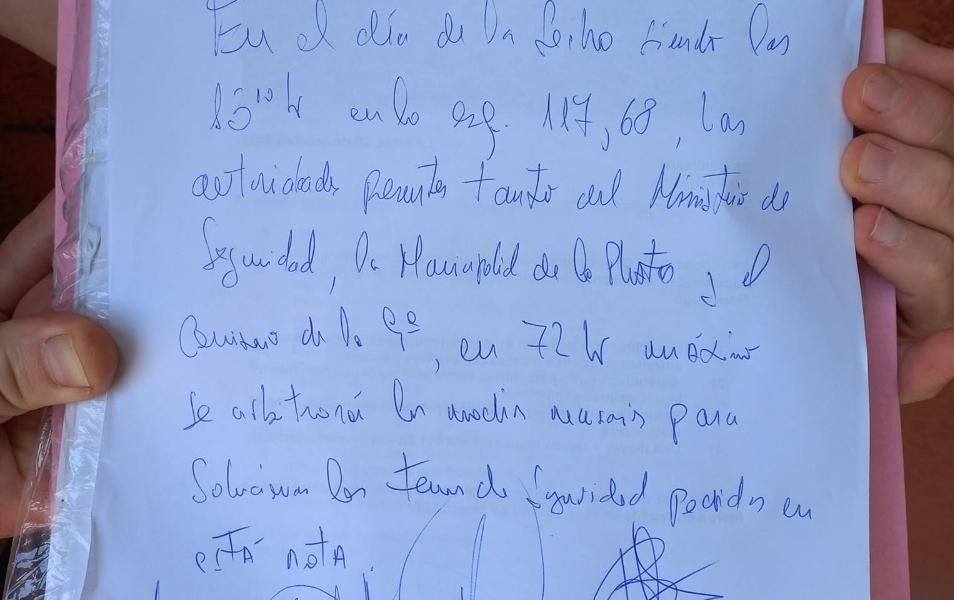 En el día de la fecha siendo las
13¹⁰ hr en la esq. 117, 68, las
autoridades presentes tanto del Ministerio de
Seguridad, la Municipalidad de la Plata y el
Comisario de la 9º, en 72 hr máximo
se arbitrará los medios necesarios para
Solucionar los temas de Seguridad pedidos en
está nota.